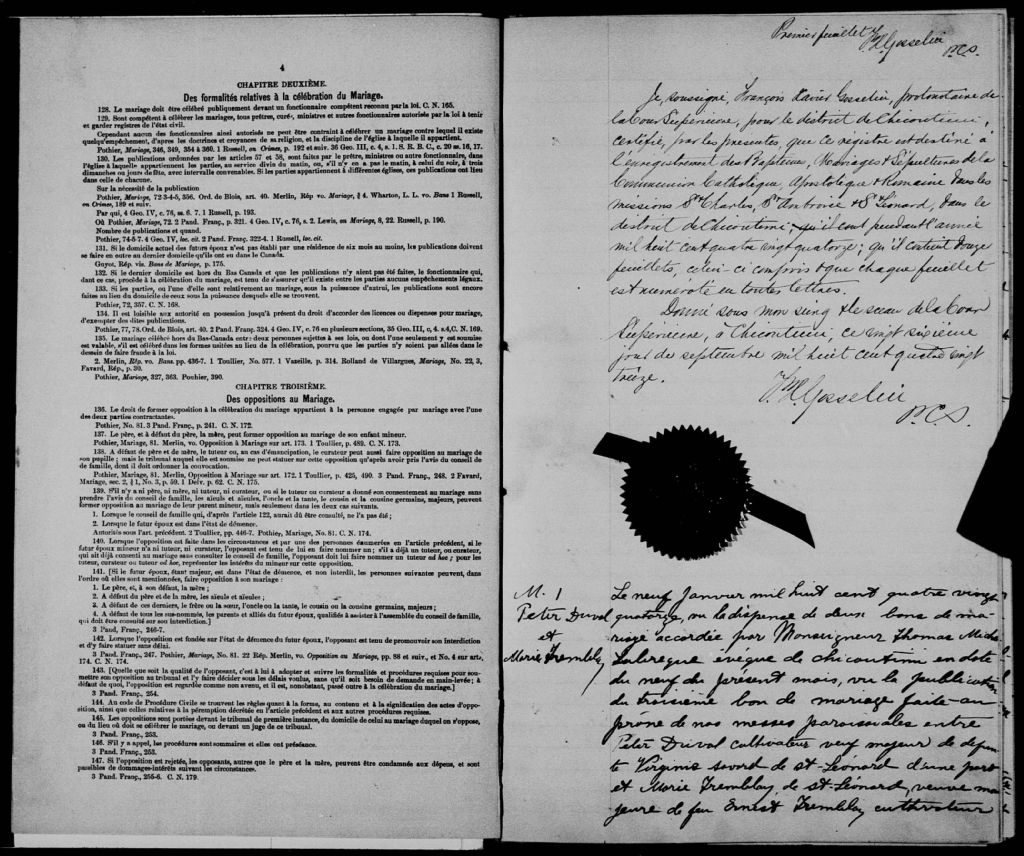 4
CHAPITRE DEUXIÈME.
Des formalités relatives à la célébration du Mariage.
128. Le mariage doit être célébré publiquement devant un fonctionnaire compétent reconnu par la loi. C. N. 165.
129. Sont compétent à célébrer les mariages, tous prêtres, curés, ministres et autres fonctionnaires autorisés par la loi à tenir
et garder registres de l'état civil.
Cependant aucun des fonctionnaires ainsi autorisés ne peut être contraint à célébrer un mariage contre lequel il existe
quelqu'empêchement, d'après les doctrines et croyances de sa religion, et la discipline de l'église à laquelle il appartient.
Pothier, Mariage, 346, 349, 354 à 360. 1 Russell, on Crimes, p. 192 et suiv. 36 Geo. III, c. 4, s. 1. S. R. B. C., c. 20 ss. 16, 17.
130. Les publications ordonnées par les articles 57 et 58, sont faites par le prêtre, ministre ou autre fonctionnaire, dans
l'église à laquelle appartiennent les parties, au service divin du matin, ou, s'il n'y en a pas le matin, à celui du soir, à trois
dimanches ou jours de fête, avec intervalle convenables. Si les parties appartiennent à différentes églises, ces publications ont lieu
dans celle de chacune.
Sur la nécessité de la publication
Pothier, Mariage, 72-3-4-5, 356. Ord. de Blois, art. 40. Merlin, Rép vo. Mariage, § 4. Wharton, L. L. vo. Bans 1 Russell,
on Crimes, 189 et suiv.
Par qui, 4 Geo. IV, c. 76, ss. 6. 7. 1 Russell, p. 193.
Où Pothier, Mariage, 72. 2 Pand. Franç., p. 321. 4 Geo. IV, c. 76, s. 2. Lewis, on Mariage, 8, 22. Russell, p. 190.
Nombre de publications et quand.
Pothier, 74-5-7. 4 Geo. IV, loc. cit. 2 Pand. Franç. 322-4. 1 Russell, loc. cit.
131. Si le domicile actuel des futurs époux n'est pas établi par une résidence de six mois au moins, les publications doivent
se faire en outre au dernier domicile qu'ils ont eu dans le Canada.
Guyot, Rép. vis. Bans de Mariage, p. 175.
132. Si le dernier domicile est hors du Bas Canada et que les publications n'y aient pas été faites, le fonctionnaire qui,
dans ce cas, procède à la célébration du mariage, est tenu de s'assurer qu'il existe entre les parties aucuns empêchements légaux.
133. Si les parties, ou l'une d'elle sont relativement au mariage, sous la puissance d'autrui, les publications sont encore
faites au lieu du domicile de ceux sous la puissance desquels elle se trouvent.
Pothier, 72, 357. C. N. 168.
134. Il est loisible aux autorité en possession jusqu'à présent du droit d'accorder des licences ou dispenses pour mariage,
d'exempter des dites publications.
Pothier, 77, 78. Ord. de Blois, art. 40. 2 Pand. Franç. 324. 4 Geo. IV, c. 76 en plusieurs sections, 35 Geo. III, c, 4. s.4, C. N. 169.
135. Le mariage célébré hors du Bas-Canada entre deux personnes sujettes à ses lois, ou dont l'une seulement y est soumise
est valable, s'il est célébré dans les formes usitées au lieu de la célébration, pourvu que les parties n'y soient pas allées dans le
dessein de faire fraude à la loi.
2. Merlin, Rép. vo. Bans, pp. 436-7. 1 Toullier, No. 577. 1 Vazeille, p. 314. Rolland de Villargues, Mariage, No. 22, 3,
Favard, Rép., p. 30.
Pothier, Mariage, 327, 363. Pouhier, 390.
CHAPITRE TROISIÈME.
Des oppositions au Mariage.
136. Le droit de former opposition à la célébration du mariage appartient à la personne engagée par mariage avec l'une
des deux parties contractantes.
Pothier, No. 81. 3 Pand. Franç., p. 241. C. N. 172.
137. Le père, et à défaut du père, la mère, peut former opposition au mariage de son enfant mineur.
Pothier, Mariage, 81. Merlin, vo. Opposition à Mariage sur art. 173. 1 Toullier, p. 489. C. N. 173.
138. A défaut de père et de mère, le tuteur ou, au cas d'émancipation, le curateur peut aussi faire opposition au mariage de
son pupille ; mais le tribunal auquel elle est soumise ne peut statuer sur cette opposition qu'après avoir pris l'avis du conseil de
de famille, dont il doit ordonner la convocation.
Pothier, Mariage, 81. Merlin, Opposition à Mariage sur art. 172. 1 Toullier, p. 425, 490. 3 Pand. Franç., 248. 2 Favard,
Mariage, sec. 2, § 1, No. 3, p. 59. 1 Delv. p. 62. C. N. 175.
139. S'il n'y a ni père, ni mère, ni tuteur, ni curateur, ou si le tuteur ou curateur a donné son consentement au mariage sans
prendre l'avis du conseil de famille, les aïeuls et aïeules, l'oncle et la tante, le cousin et la cousine germains, majeurs, peuvent
former opposition au mariage de leur parent mineur, mais seulement dans les deux cas suivants.
1. Lorsque le conseil de famille qui, d'après l'article 122, aurait dû être consulté, ne l'a pas été ;
2. Lorsque le futur époux est dans l'état de démence.
Autorités sous l'art. précédent. 2 Toullier, pp. 446-7. Pothier, Mariage, No. 81. C. N. 174.
140. Lorsque l'opposition est faite dans les circonstances et par une des personnes énumérées en l'article précédent, si le
futur époux mineur n'a ni tuteur, ni curateur, l'opposant est tenu de lui en faire nommer un ; s'il a déjà un tuteur, ou curateur,
qui ait déjà consenti au mariage sans consulter le conseil de famille, l'opposant doit lui faire nommer un tuteur ad hoc ; pour les
tuteur, curateur ou tuteur ad hoc, représenter les intérêts du mineur sur cette opposition.
141. [Si le futur époux, étant majeur, est dans l'état de démence, et non interdit, les personnes suivantes peuvent, dans
l'ordre où elles sont mentionnées, faire opposition à son mariage :
1. Le père, et, à son défaut, la mère ;
2. A défaut du père et de la mère, les aïeuls et aïeules ;
3. A défaut de ces derniers, le frère ou la sœur, l'oncle ou la tante, le cousin ou la cousine germains, majeurs ;
4. A défaut de tous les sus-nommés, les parents et alliés du futur époux, qualifiés à assister à l'assemblée du conseil de famille,
qui doit être consulté sur son interdiction.]
3 Pand, Franç., 246-7.
142. Lorsque l'opposition est fondée sur l'état de démence du futur époux, l'opposant est tenu de promouvoir son interdiction
et d'y faire statuer sans délai.
3 Pand. Franç., 247. Pothier, Mariage, No. 81. 22 Rép. Merlin, vo. Opposition au Mariage, pp. 88 et suiv., et No. 4 sur arts,
174. C. N. 174.
143. [Quelle que soit la qualité de l'opposant, c'est à lui à adopter et suivre les formalités et procédures requises pour sou-
mettre son opposition au tribunal et l'y faire décider sous les délais voulus, sans qu'il soit besoin de demande en main-levée ; à
défaut de quoi, l'opposition est regardée comme non avenu, et il est, nonobstant, passé outre à la célébration du mariage.]
3 Pand. Franç, 254.
144. Au code de Procédure Civile se trouvent les règles quant à la forme, au contenu et à la signification des actes d'oppo-
sition, ainsi que celles relatives à la péremption décrétée en l'article précédent et aux autres procédures requises.
145. Les oppositions sont portées devant le tribunal de première instance, du domicile de celui au mariage duquel on s'oppose,
ou du lieu où doit se célébrer le mariage, ou devant un juge de ce tribunal.
3 Pand. Franç., 253.
146. S'il y a appel, les procédures sont sommaires et elles ont préséance.
3 Pand. Franç., 253.
147. Si l'opposition est rejetée, les opposants, autres que le père et la mère, peuvent être condamnés aux dépens, et sont
passibles de dommages-intérêts suivant les circonstances.
3 Pand. Franç., 255-6. C. N. 179.
Premier feuillet FX Gosselin
P.C.S.
Je, soussigné, François Xavier Gosselin, protonotaire de
la Cour Supérieure, pour le district de Chicoutimi,
certifie, par les présentes, que ce registre est destiné à
l'enregistrement des Baptêmes, Mariages & Sépultures de la
Communion Catholique, Apostolique & Romaine dans les
missions St Charles, St Ambroise & St Léonard, dans le
district de Chicoutimi, qu'il est pendant l'année
mil huit cent quatre vingt quatorze ; qu'il contient douze
feuillets, celui-ci compris & que chaque feuillet
est numéroté en toutes lettres.
Donné sous mon seing & le sceau de la Cour
Supérieure, à Chicoutimi, ce vingt sixième
jour de septembre mil huit cent quatre vingt
treize.
FX Gosselin
P.C.S.
M. 1
Peter Duval
et
Marie Tremblay
Le neuf Janvier mil huit cent quatre vingt
quatorze, vu la dispense de deux bans de ma-
riage accordée par Monseigneur Thomas Michel
Labrecque évêque de Chicoutimi en date
du neuf du présent mois, vu la publication
du troisième ban de mariage faite au
prône de nos messes paroissiales entre
Peter Duval cultivateur veuf majeur de défun-
te Virginie Savard de St-Léonard d'une part
et Marie Tremblay, de St-Léonard, veuve ma
jeure de feu Ernest Tremblay cultivateur